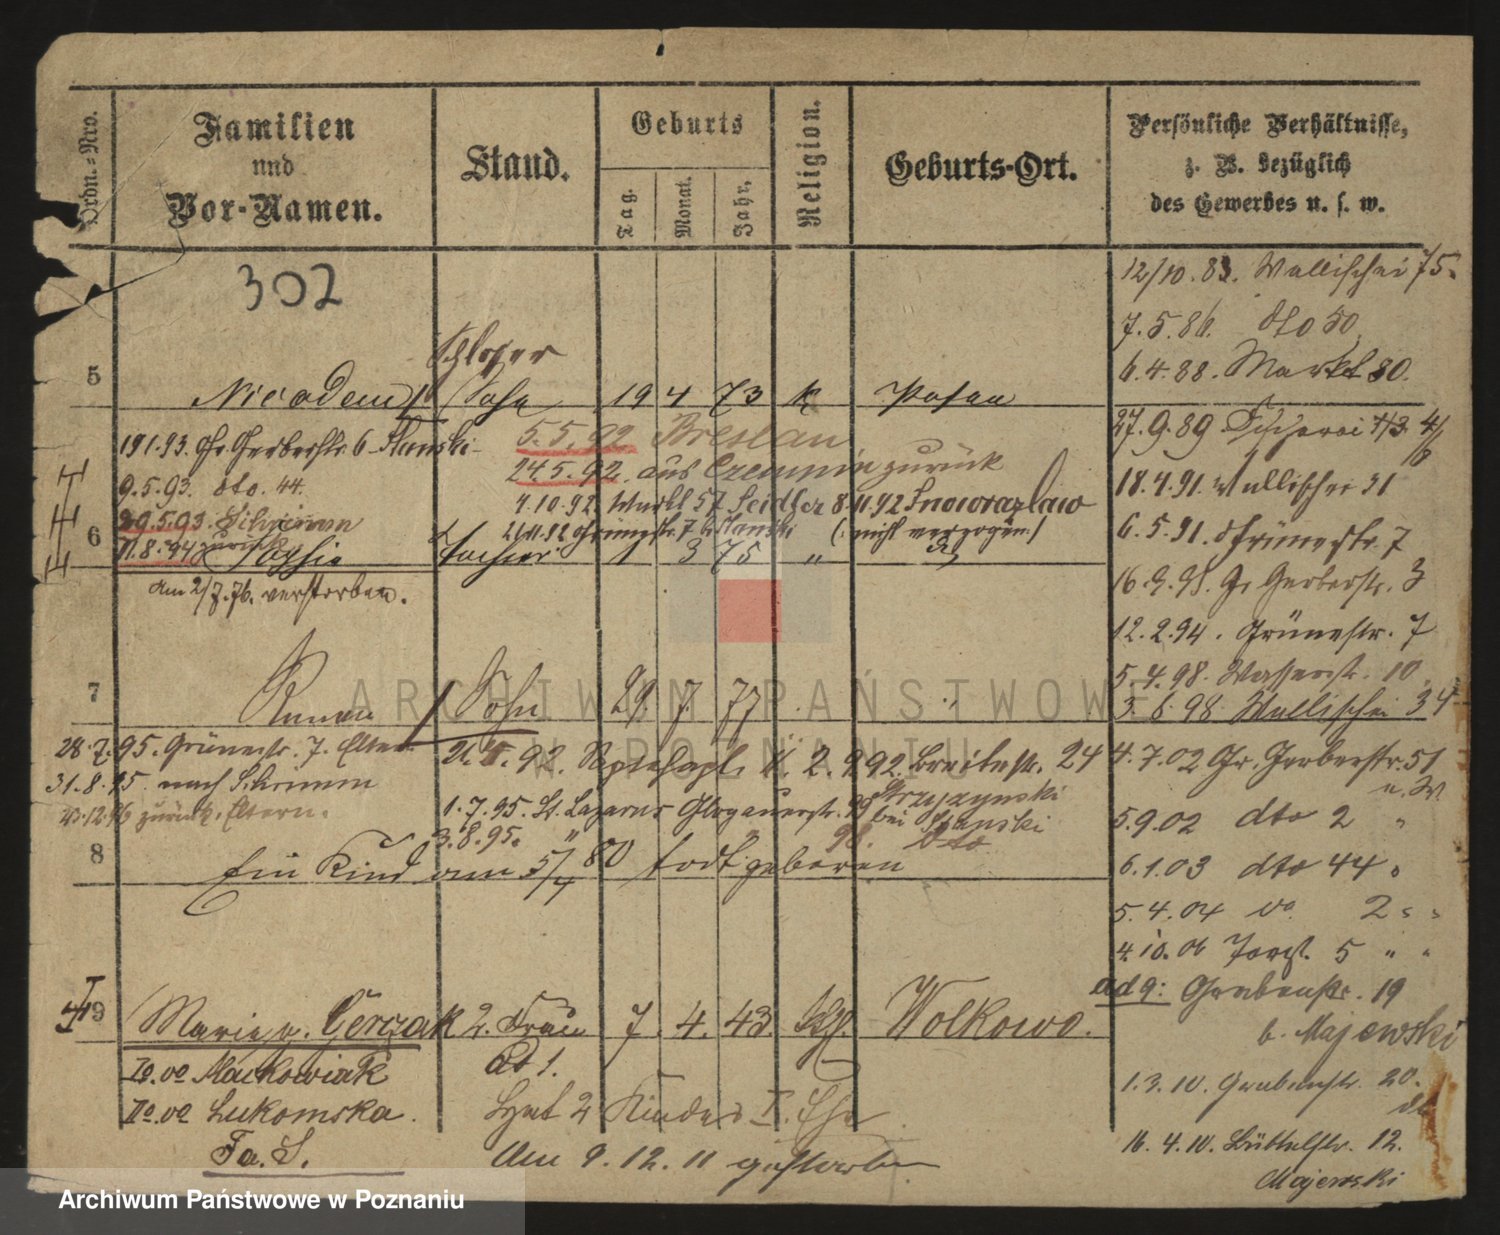 Ordn.=Nro.
Familien
und
Vor-Namen.
Stand.
Geburts
Tag.
Monat.
Jahr.
Religion.
Geburts-Ort.
Persönliche Verhältnisse,
z. B. bezüglich
des Gewerbes u. s. w.
302
12/10. 83. Wallischei 75.
7. 5. 86. dto 50
6. 4. 88. Markt 80.
Schlosser
5 Nicodem Sohn 19 4 73 k Posen
27. 9. 89
19 1. 93. Gr. Gerberstr. 6 Slanski
5. 5. 92 Breslau
24. 5. 92. aus Czempin zurück
9. 5. 93. dto. 44.
4. 10. 92 57 8 11. 92 Inowrazlaw
18. 4. 91. Wallischei 31
29. 5. 93. Schrimm
7 b. Slanski (: nicht verzogen :)
6. 5. 91. Grünestr. 7
11. 8. 94 zurück
6 Sophie Tochter 1 3 75 "
am 2/7. 76. verstorben.
Gr Gerberstr. 3
12. 2. 94. Grünestr. 7
5. 4. 98. Wasserstr. 10
7 Roman Sohn 29. 7. 77
3. 6 98. Wallischei 34
28. 7. 95. Grünestr. 7. Eltern
92. Breitestr. 24
4. 7. 02 Gr. Gerberstr. 51
u. W.
31. 8. 95. nach Schrimm
1. 7. 95. St. Lazarus Glogauerstr. 98 bei Slanski
Strzyzynski
zurück. Eltern.
3. 8. 95. " " 98. Dto
5. 9. 02 dto 2 "
8 Ein Kind am 5/4 80 todt geboren
6. 1. 03 dto 44 "
5. 4. 04 do 2 " "
4. 10. 06 5 " "
ad 9: Grabenstr. 19
9 Marie v. Gerczak 2. Frau 7. 4. 43. Kth. Wolkowo.
b. Majewski
Io. vo Mackowiak ad 1.
1. 3. 10. Grabenstr. 20.
IIo. vo Lukomska.
Hat 2 Kinder I. Ehe
Fa. S.
Am 9. 12. 11 gestorben
16. 4. 10. Büttelstr. 12.
Majewski
ARCHIWUM PAŃSTWOWE
W POZNANIU
Archiwum Państwowe w Poznaniu